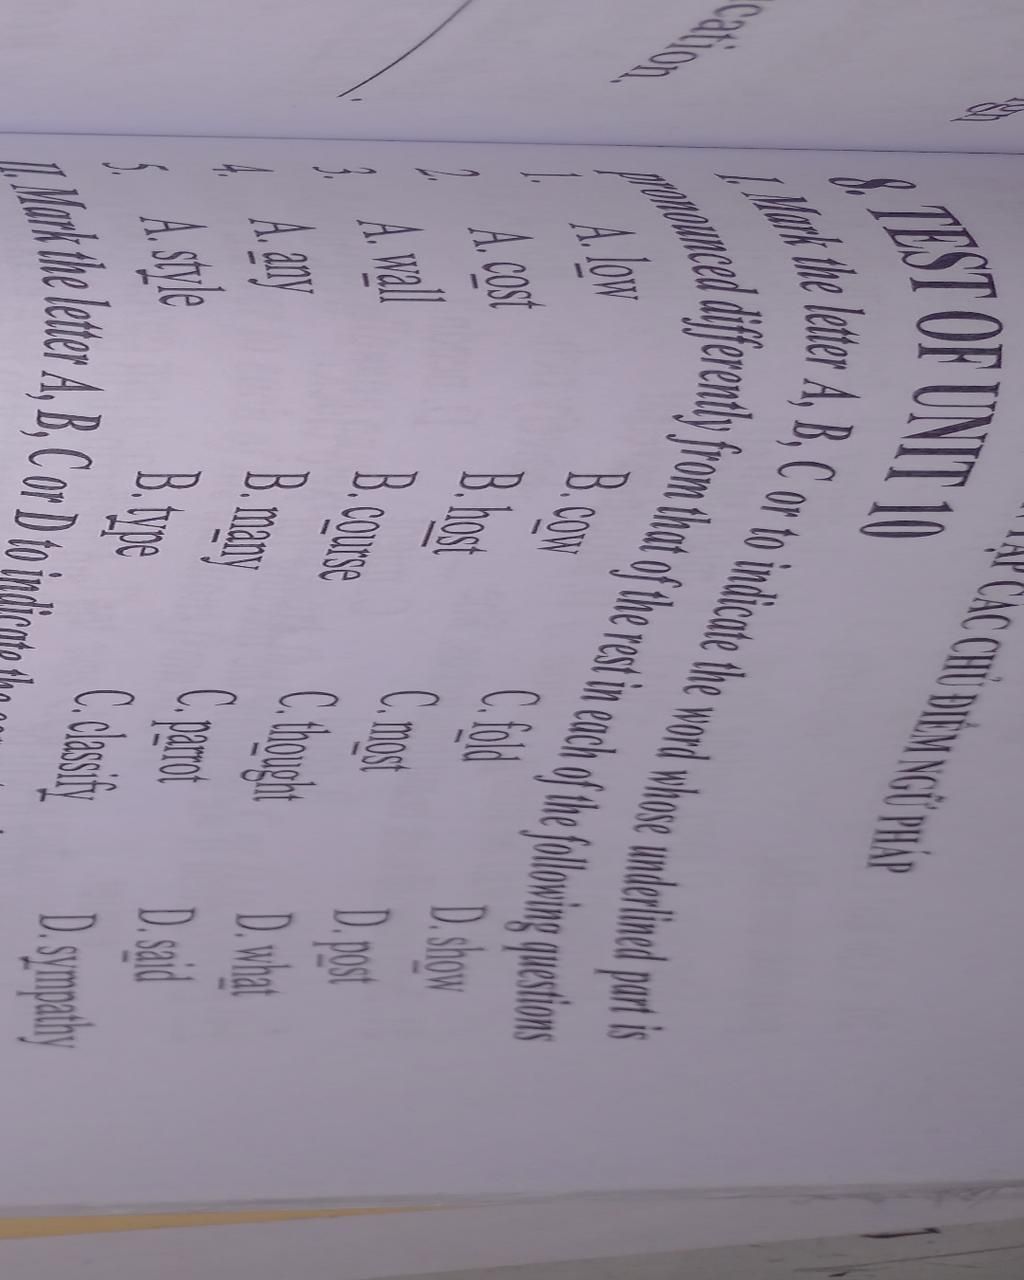 cation.
TẬP CÁC CHỦ ĐIỂM NGỮ PHÁP
8. TEST OF UNIT 10
I. Mark the letter A, B, C or to indicate the word whose underlined part is
pronounced differently from that of the rest in each of the following questions
1. A. low B. cow C. fold D. show
2. A. cost B. host C. most D. post
3. A. wall B. course C. thought D. what
4. A. any B. many C. parrot D. said
5. A. style B. type C. classify D. sympathy
II. Mark the letter A, B, C or D to indicate the